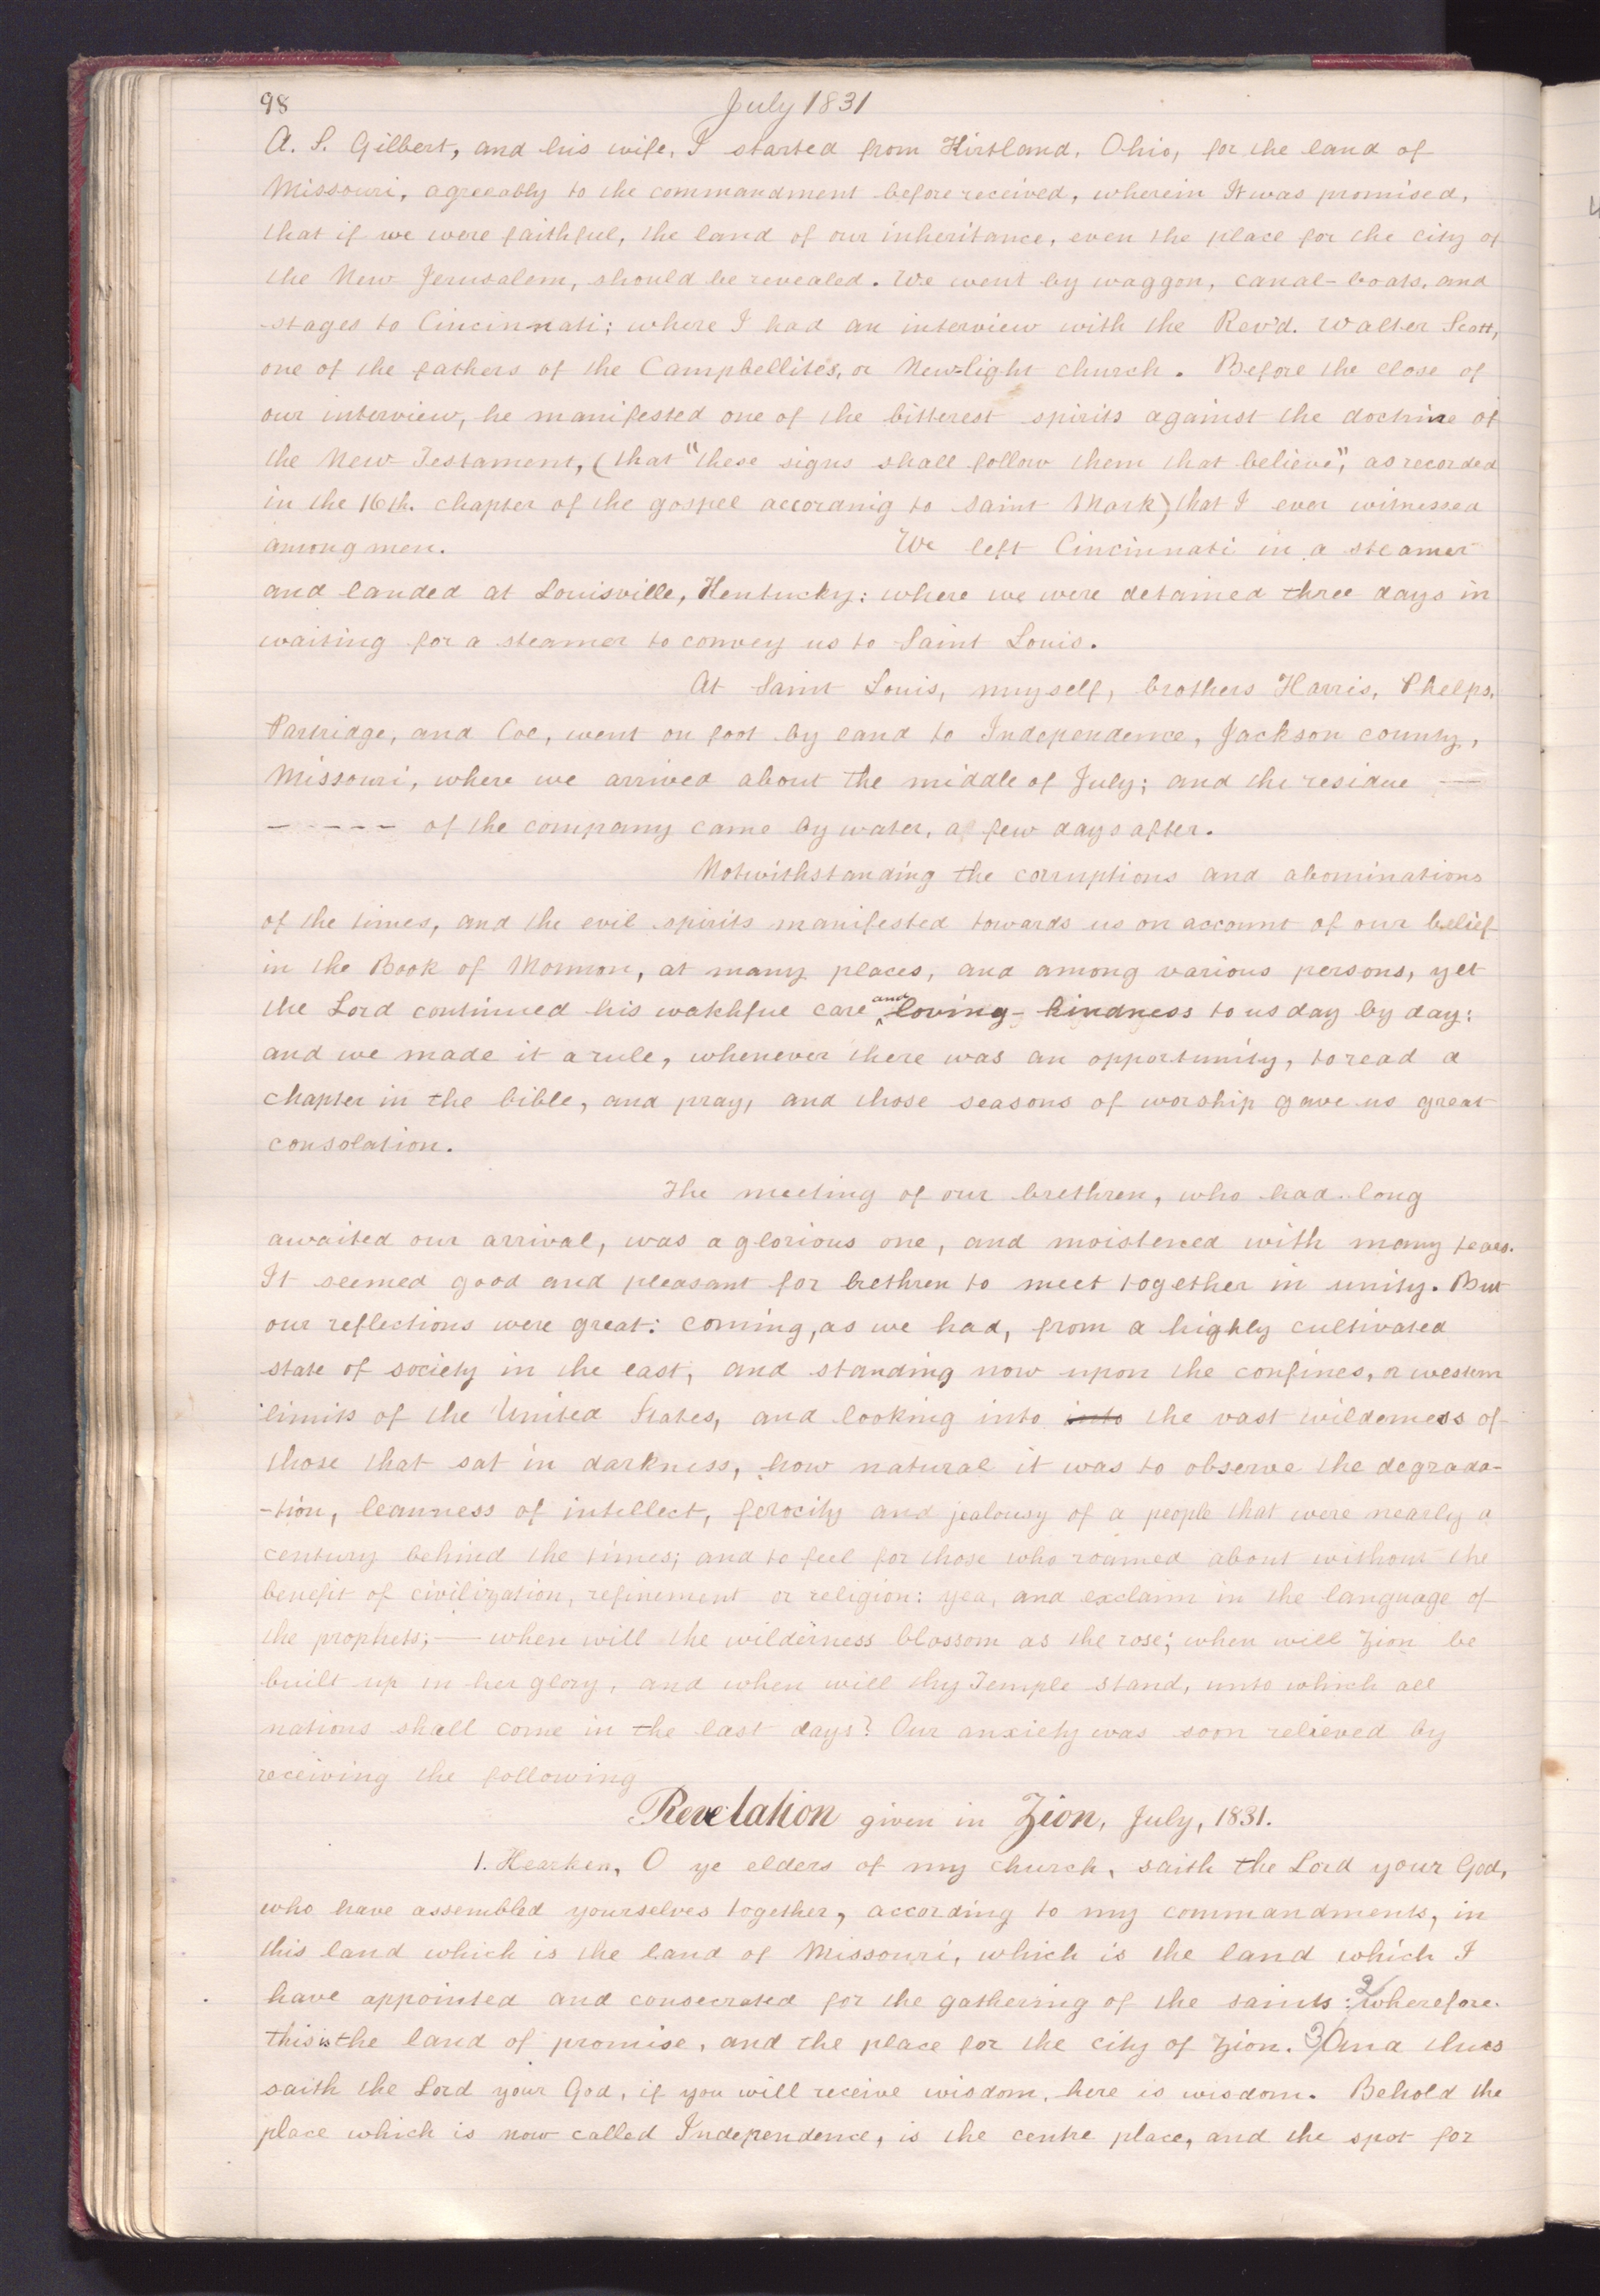 98
July 1831
A. S. Gilbert, and his wife, I started from Kirtland, Ohio, for the land of
Missouri, agreeably to the commandment before received, wherein It was promised,
that if we were faithful, the land of our inheritance, even the place for the city of
the New Jerusalem, should be revealed. We went by waggon, canal-boats, and
stages to Cincinnati; where I had an interview with the Rev'd. Walter Scott,
one of the fathers of the Campbellites, or New-light church. Before the close of
our interview, he manifested one of the bitterest spirits against the doctrine of
the New Testament, (that "these signs shall follow them that believe", as recorded
in the 16th. chapter of the gospel according to Saint Mark,) that I ever witnessed
among men. We left Cincinnati in a steamer
and landed at Louisville, Kentucky: where we were detained three days in
waiting for a steamer to convey us to Saint Louis.
At Saint Louis, myself, brothers Harris, Phelps,
Partridge, and Coe, went on foot by land to Independence, Jackson county,
Missouri, where we arrived about the middle of July; and the residue —
- - - - - of the company came by water, a few days after.
Notwithstanding the corruptions and abominations
of the times, and the evil spirits manifested towards us on account of our belief
in the Book of Mormon, at many places, and among various persons, yet
the Lord continued his watchful care and loving-kindness to us day by day:
and we made it a rule, whenever there was an opportunity, to read a
chapter in the bible, and pray, and those seasons of worship gave us great
consolation.
The meeting of our brethren, who had long
awaited our arrival, was a glorious one, and moistened with many tears.
It seemed good and pleasant for brethren to meet together in unity. But
our reflections were great: coming, as we had, from a highly cultivated
state of society in the east, and standing now upon the confines, or western
limits of the United States, and looking into into the vast wilderness of
those that sat in darkness, how natural it was to observe the degrada-
-tion, leanness of intellect, ferocity and jealousy of a people that were nearly a
century behind the times; and to feel for those who roamed about without the
benefit of civilization, refinement or religion: yea, and exclaim in the language of
the prophets;— when will the wilderness blossom as the rose; when will Zion be
built up in her glory, and when will thy Temple stand, unto which all
nations shall come in the last days? Our anxiety was soon relieved by
receiving the following
Revelation given in Zion, July, 1831.
1. Hearken, O ye elders of my church, saith the Lord your God,
who have assembled yourselves together, according to my commandments, in
this land which is the land of Missouri, which is the land which I
have appointed and consecrated for the gathering of the saints: 2/ wherefore.
this is the land of promise, and the place for the city of Zion. 3/ And thus
saith the Lord your God, if you will receive wisdom, here is wisdom. Behold the
place which is now called Independence, is the centre place, and the spot for